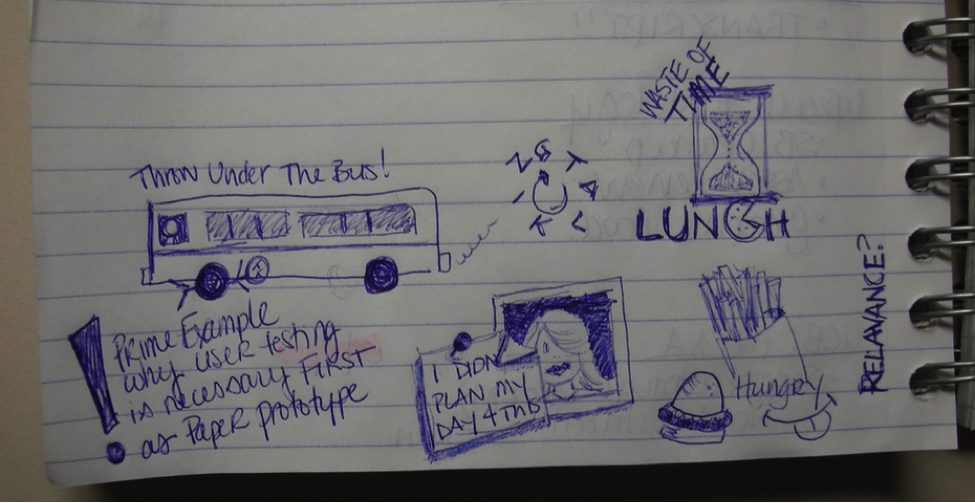 WASTE OF
TIME
LUNCH
Throw Under The Bus!
Prime Example
why user testing
is necessary FIRST
as Paper prototype
I DIDN
PLAN MY
DAY 4 THIS
Hungry
RELAVANCE?